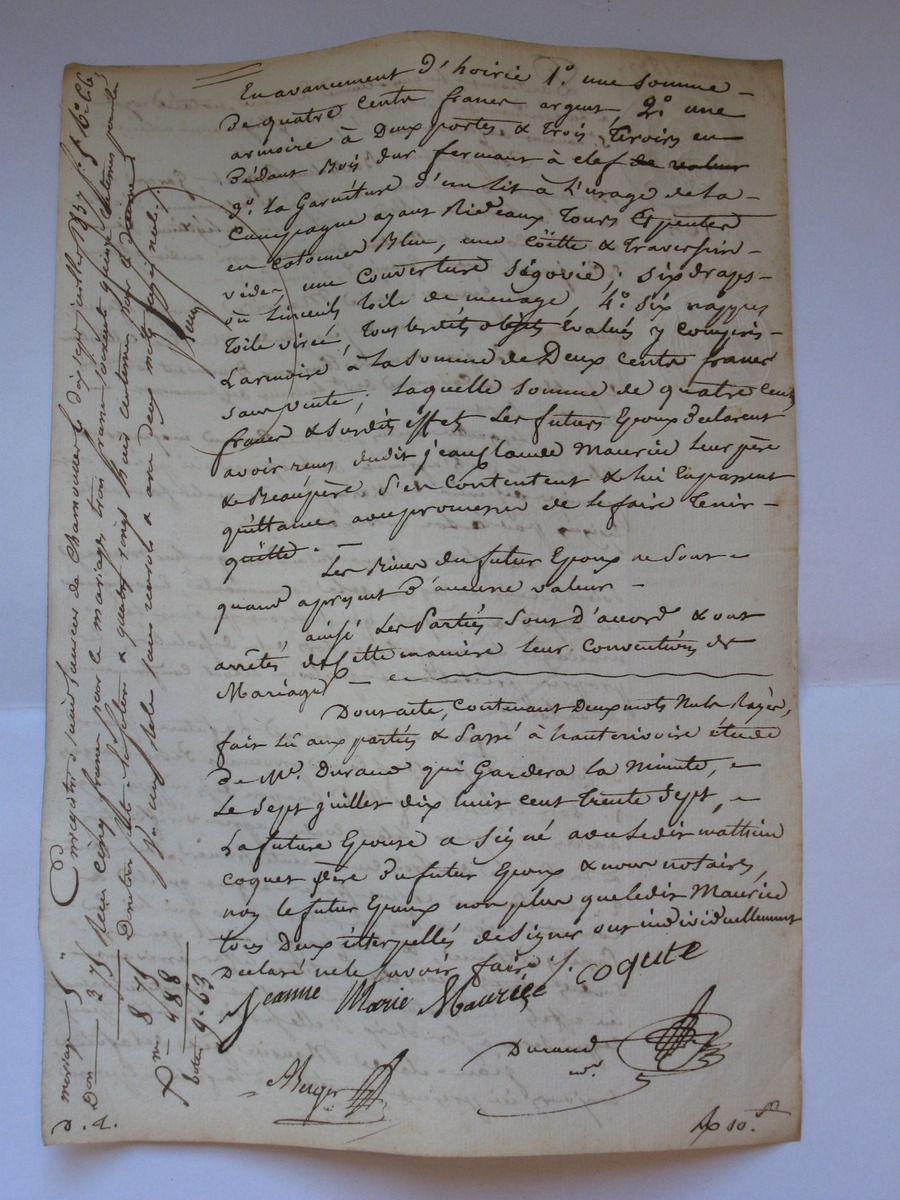 En avancement d'hoirie 1º. une somme
de quatre cents francs argent, 2º. une
armoire à deux portes & trois tiroirs en
dedans bois dur fermant à clef de valeur
3º. la Garniture d'un lit à l'usage de la
Campagne ayant Rideaux tours & pentes
en cotonne Bleu, une Coëtte & traversin
vides une couverture Ségovie, six draps
ou linceuils toile de menage, 4º. six nappes
toile virée, tous lesdits objets évalués y compris
L'armoire à la somme de Deux cents francs
sans vente; laquelle somme de quatre cents
francs & susdits effets Les futurs Epoux declarent
avoir reçus dudit jean Claude Maurice leur père
& Beaupère s'en Contentent & lui en passent
quittance avec promesse de le faire tenir
quitte. —
Les Biens du futur Epoux ne sont
quand apresent d'aucune valeur —
ainsi Les Parties sont d'accord & ont
arrêtés de cette maniere leur Conventions de
Mariage —
Dont acte, Contenant Deux mots Nuls Rayés,
fait lû aux parties & Passé à hauterivoire étude
de Me. Durand qui Gardera la Minute,
Le sept juillet dix huit cent trente sept,
La future Epouse a signé avec ledit mathieu
coquet père du futur Epoux & nous notaires,
non le futur Epoux non plus que ledit Maurice
tous Deux interpellés de signer ont individuellement
Declaré ne le savoir faire /.
Jeanne Marie Maurice coqute
Durand
nre.
Berger
Enregistré à Saint Laurent de Chamousset le dix sept juillet 1837 fº.
Reçu cinq francs pour le mariage, trois francs soixante quinze centimes pour la
Donation
& quatre vingt huit centimes pour le décime
mariage 5 "
Don 3 75
8 75
Xme 88
total 9-63
D. 4.